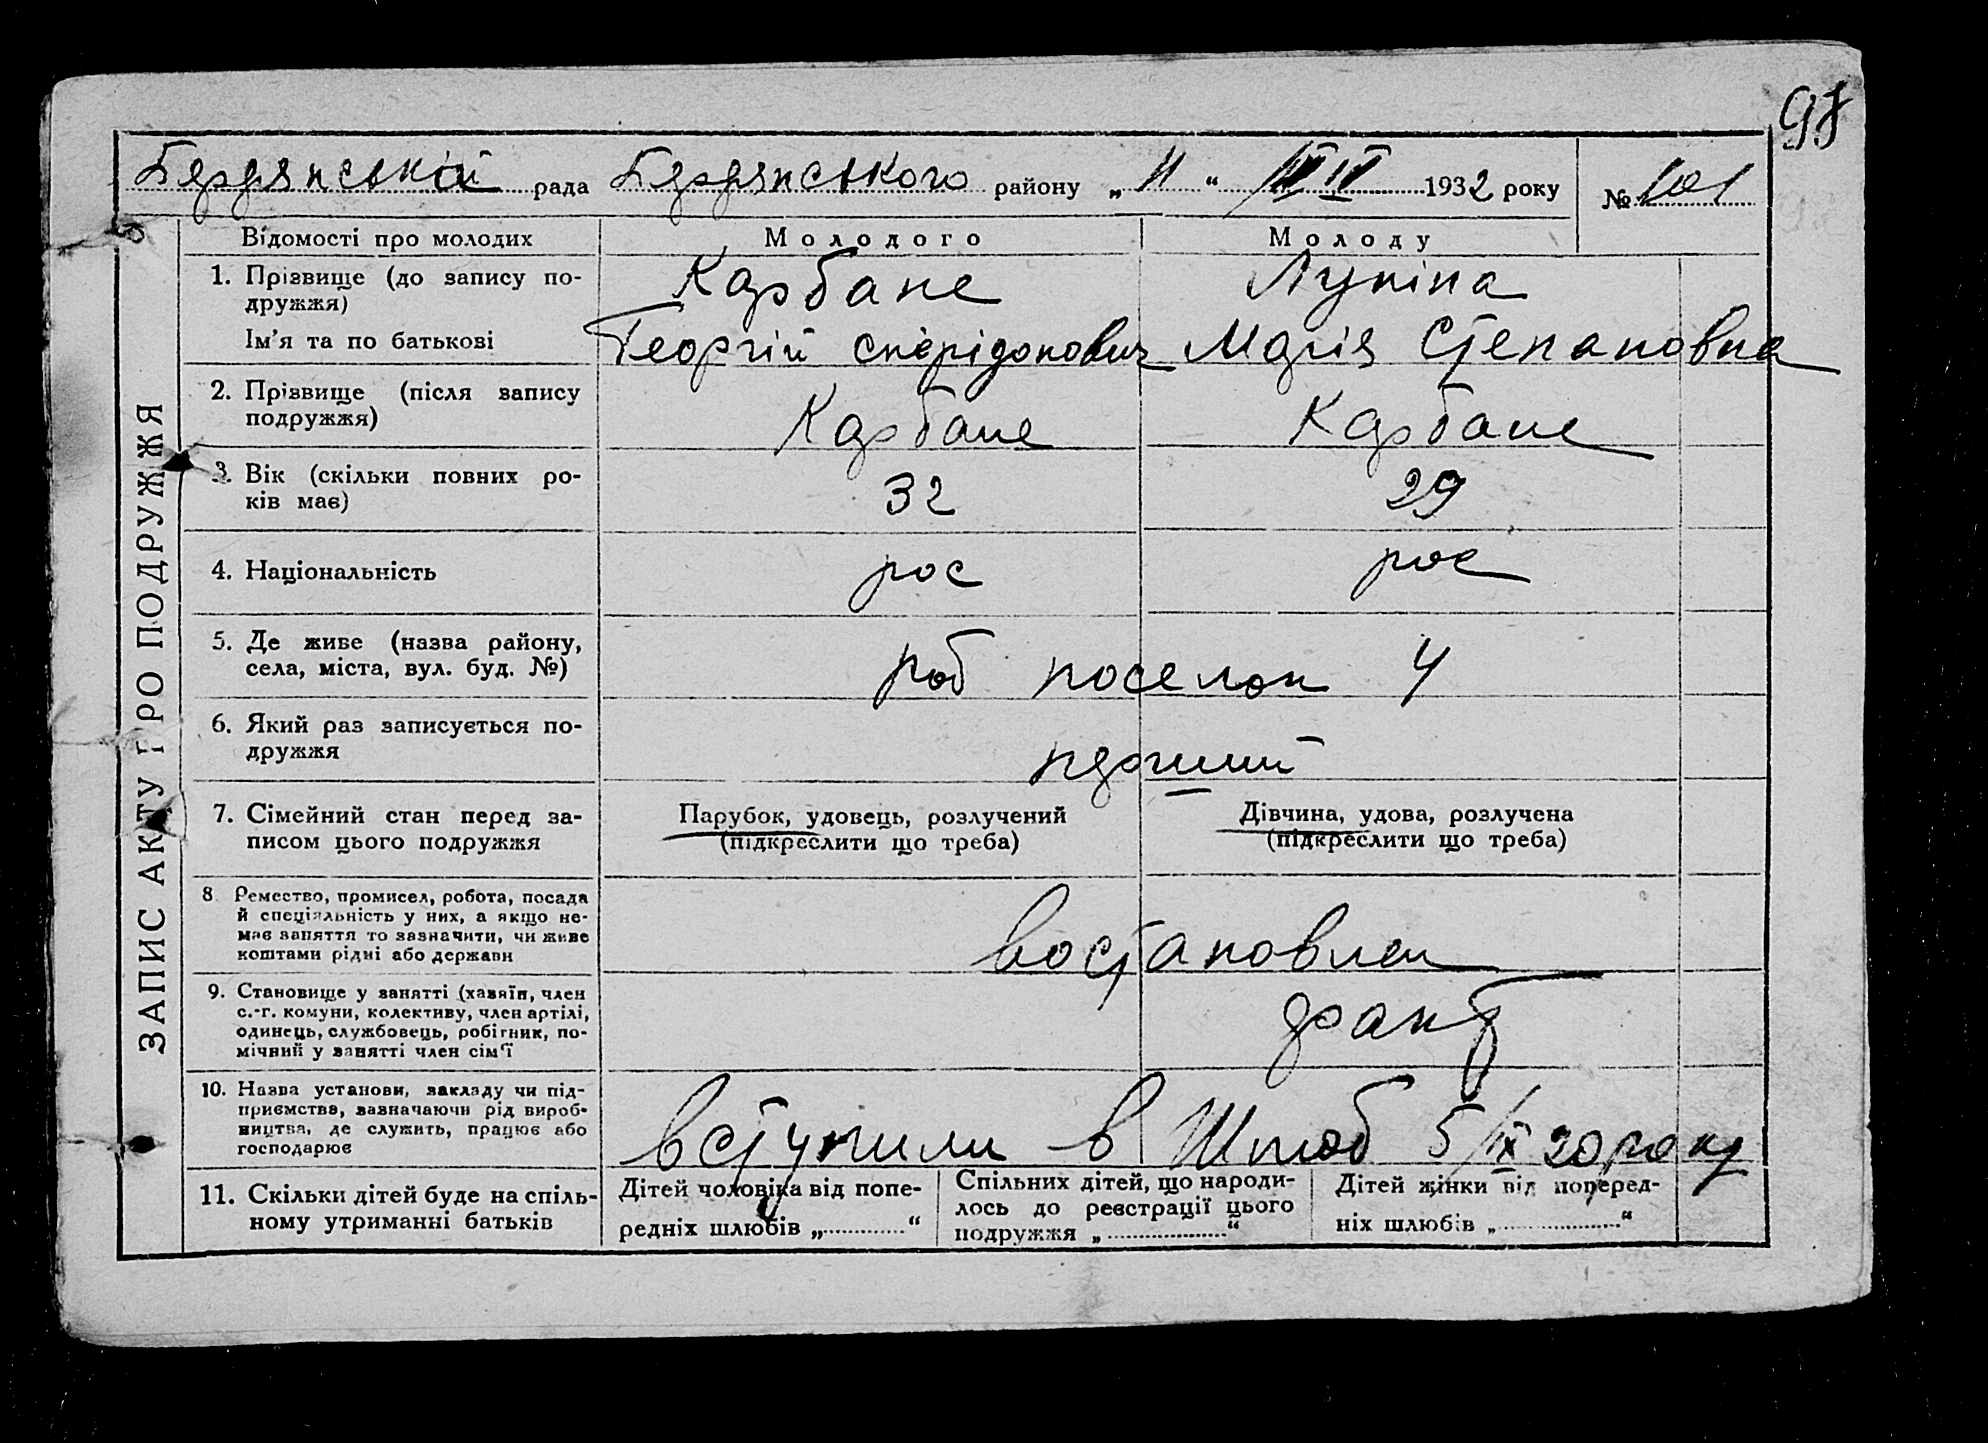 98
Бердянській рада Бердянського району „ 11 “ IV 1932 року № 101
ЗАПИС АКТУ ПРО ПОДРУЖЖЯ
Відомості про молодих Молодого Молоду
1. Прізвище (до запису по-
дружжя) Карбане Лупіна
Ім’я та по батькові Георгій Спірідонович Марія Степановна
2. Прізвище (після запису
подружжя) Карбане Карбане
3. Вік (скільки повних ро-
ків має) 32 29
4. Національність рос рос
5. Де живе (назва району,
села, міста, вул. буд. №) роб поселок 4
6. Який раз записується по-
дружжя перший
7. Сімейний стан перед за-
писом цього подружжя
Парубок, удовець, розлучений
(підкреслити що треба)
Дівчина, удова, розлучена
(підкреслити що треба)
8. Ремество, промисел, робота, посада
й спеціяльність у них, а якщо не-
має заняття то зазначити, чи живе
коштами рідні або держави
востановлен
9. Становище у занятті (хазяїн, член
с.-г. комуни, колективу, член артілі,
одинець, службовець, робітник, по-
мічний у занятті член сім’ї
10. Назва установи, закладу чи під-
приємства, зазначаючи рід вироб-
ництва, де служить, працює або
господарює
вступили в Шлюб 5/IX 20 року
11. Скільки дітей буде на спіль-
ному утриманні батьків
Дітей чоловіка від попе-
редніх шлюбів „ “
Спільних дітей, що народи-
лось до реєстрації цього
подружжя „ “
Дітей жінки від поперед-
ніх шлюбів „ “